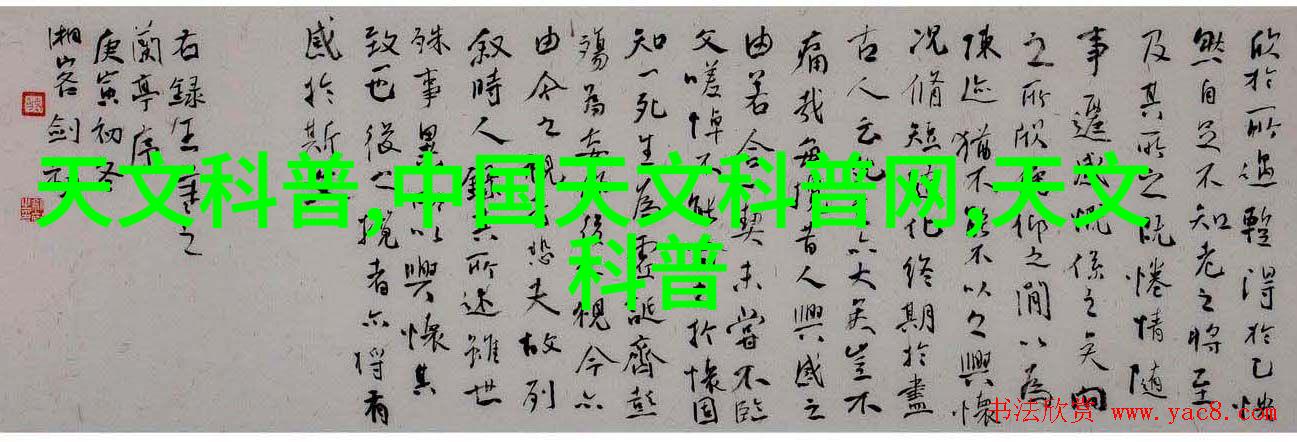 天文科普,中国天文科普网,天文
科普
欣於所遇蹔得於己怏
然自足不知老之將至
及其所之既惓情隨
事遷感慨係之矣向
之所欣俛仰之間以為
陳迹猶不能不以之興懷
況脩短隨化終期於盡
古人云死生亦大矣豈不
痛哉每攬昔人興感之
由若合一契未嘗不臨
文嗟悼不能喻之於懷固
知一死生為虛誕齊彭
殤為妄作後之視今亦
由今之視昔悲夫故列
敘時人錄其所述雖世
殊事異所以興懷其
致一也後之攬者亦將有
感於斯
右錄王羲之
蘭亭序
庚寅初冬
湘客劍
书法欣赏 www.yac8.com